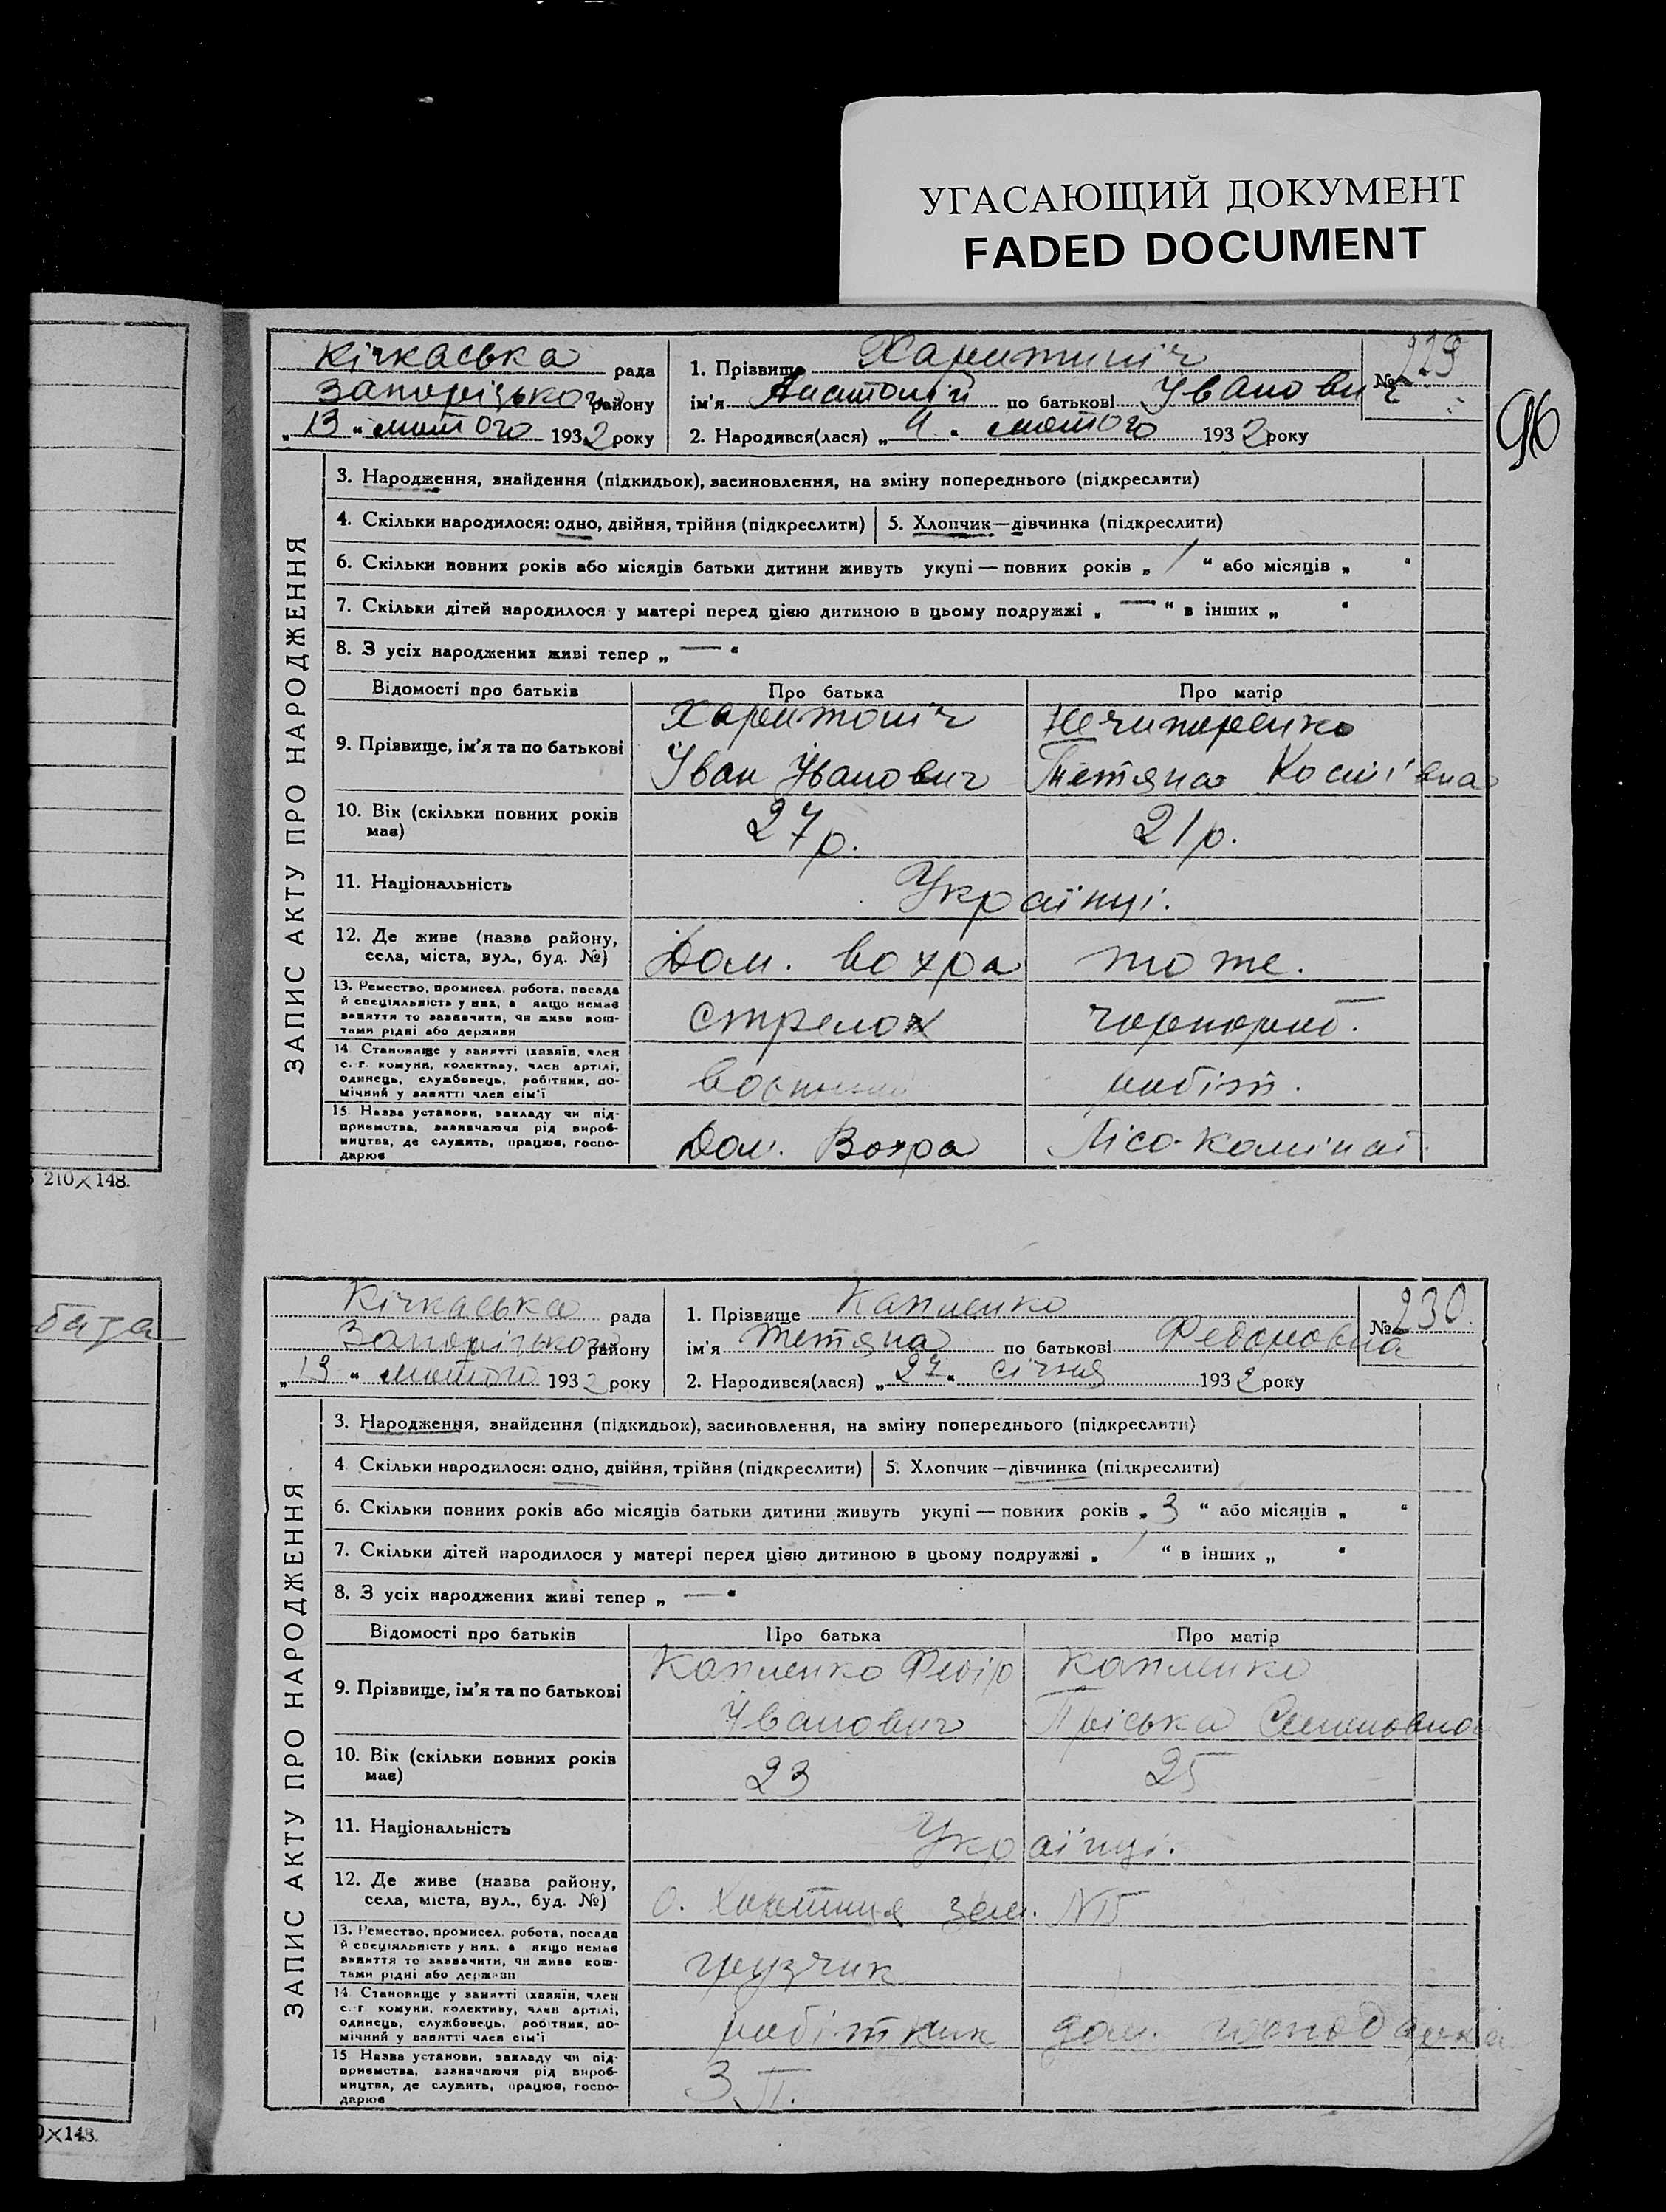 УГАСАЮЩИЙ ДОКУМЕНТ
FADED DOCUMENT
96
210×148.
Кічкаська рада
Запорізького району
„13“ лютого 1932 року
1. Прізвище
№ 229
ім'я Анатолій по батькові Іванович
2. Народився(лася) „4“ лютого 1932 року
ЗАПИС АКТУ ПРО НАРОДЖЕННЯ
3. Народження, знайдення (підкидьок), засиновлення, на зміну попереднього (підкреслити)
4. Скільки народилося: одно, двійня, трійня (підкреслити) 5. Хлопчик—дівчинка (підкреслити)
6. Скільки повних років або місяців батьки дитини живуть укупі — повних років „1“ або місяців „ “
7. Скільки дітей народилося у матері перед цією дитиною в цьому подружжі „—“ в інших „ “
8. З усіх народжених живі тепер „—“
Відомості про батьків Про батька Про матір
9. Прізвище, ім'я та по батькові
Харитоніч
Іван Іванович
Нечипоренко
Тетяна
10. Вік (скільки повних років має) 27 р. 21 р.
11. Національність Українці.
12. Де живе (назва району, села, міста, вул., буд. №) Дом. вохра тоже.
13. Ремество, промисел. робота, посада й спеціяльність у них, а якщо немає заняття то зазначити, чи живе коштами рідні або держави
стрелок чорнороб.
14. Становище у занятті (хазяїн, член с.-г. комуни, колективу, член артілі, одинець, службовець, робітник, помічний у занятті член сім'ї
робіт.
15. Назва установи, закладу чи підприємства, зазначаючи рід виробництва, де служить, працює, господарює
Дом. Вохра Лісо-комбінат.
×148.
Кічкаська рада
Запорізького району
„13“ лютого 1932 року
1. Прізвище Капленко
№ 230
ім'я Тетяна по батькові Федоровна
2. Народився(лася) „27“ січня 1932 року
ЗАПИС АКТУ ПРО НАРОДЖЕННЯ
3. Народження, знайдення (підкидьок), засиновлення, на зміну попереднього (підкреслити)
4. Скільки народилося: одно, двійня, трійня (підкреслити) 5. Хлопчик—дівчинка (підкреслити)
6. Скільки повних років або місяців батьки дитини живуть укупі — повних років „3“ або місяців „ “
7. Скільки дітей народилося у матері перед цією дитиною в цьому подружжі „1“ в інших „ “
8. З усіх народжених живі тепер „—“
Відомості про батьків Про батька Про матір
9. Прізвище, ім'я та по батькові
Капленко Федір
Іванович
Капленко
Пріська Семеновна
10. Вік (скільки повних років має) 23 25
11. Національність Українці.
12. Де живе (назва району, села, міста, вул., буд. №) О. Хортиця зем.
13. Ремество, промисел. робота, посада й спеціяльність у них, а якщо немає заняття то зазначити, чи живе коштами рідні або держави
грузчик
14. Становище у занятті (хазяїн, член с.-г. комуни, колективу, член артілі, одинець, службовець, робітник, помічний у занятті член сім'ї
робітник дом. господарка
15. Назва установи, закладу чи підприємства, зазначаючи рід виробництва, де служить, працює, господарює
З.П.